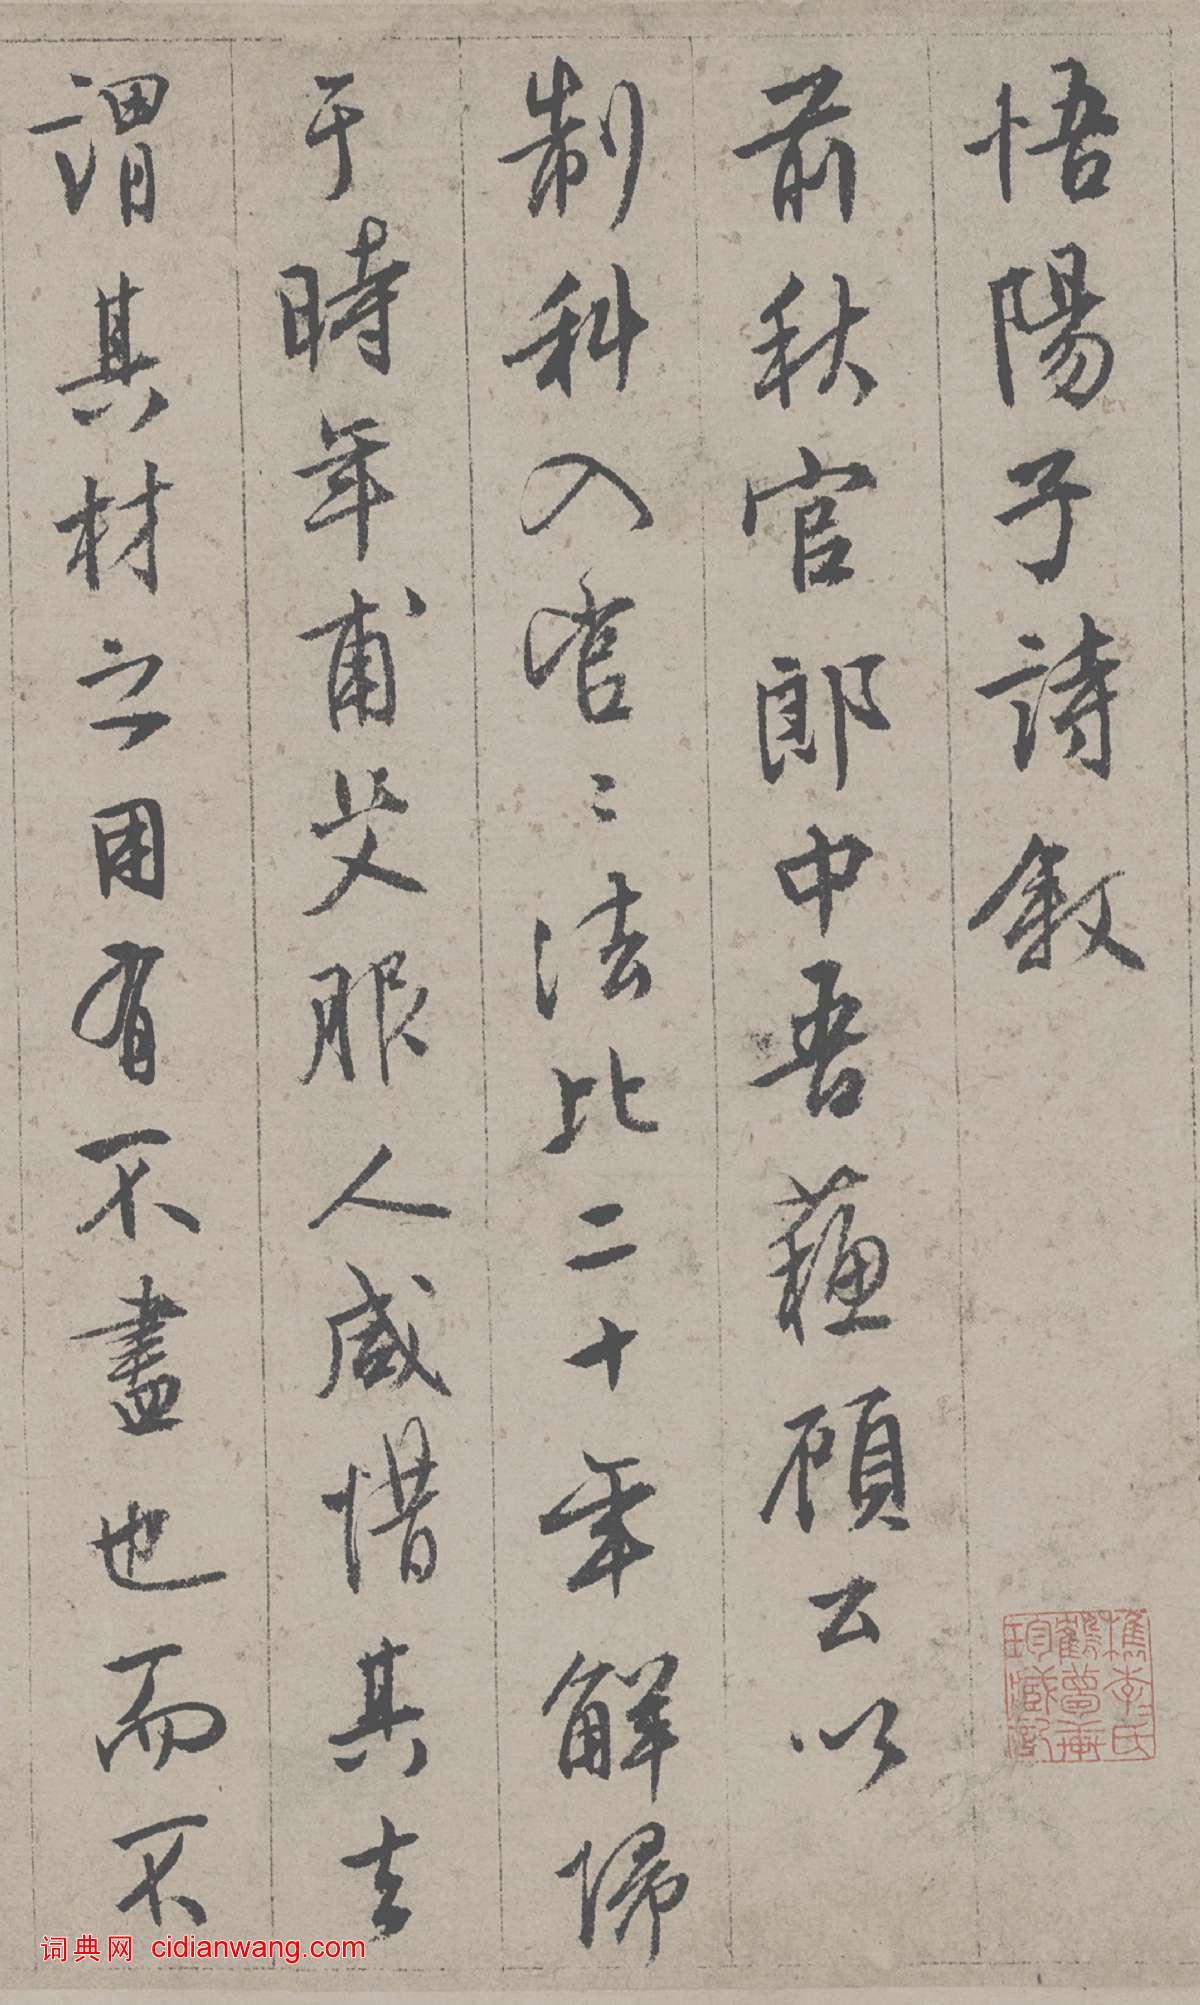 悟陽子詩敘
前秋官郎中吾蘓顧公以
制科入官〻法比二十年解歸
于時年甫艾服人咸惜其去
謂其材之用有不盡也而不
檇李氏
鶴夢軒
珍藏記
词典网 cidianwang.com